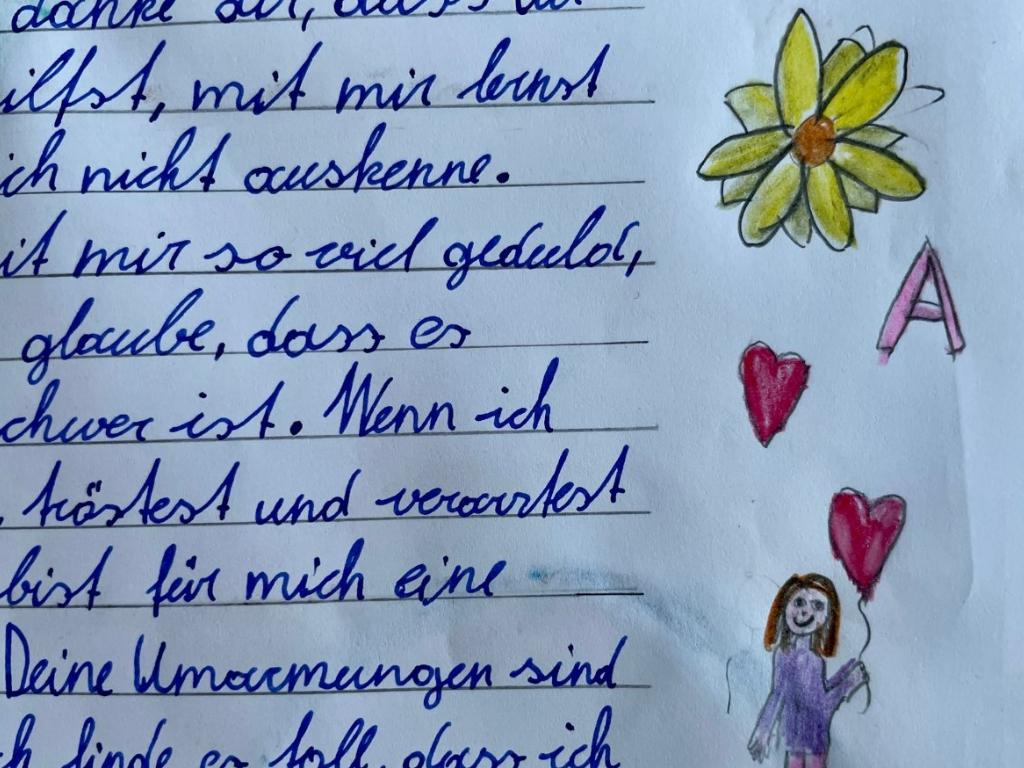 danke dir, dass du
ilfst, mit mir lernst
ich nicht auskenne.
it mir so viel geduld,
glaube, dass es
chwer ist. Wenn ich
tröstest und verarztest
bist für mich eine
Deine Umarmungen sind
h finde es toll, dass ich
A